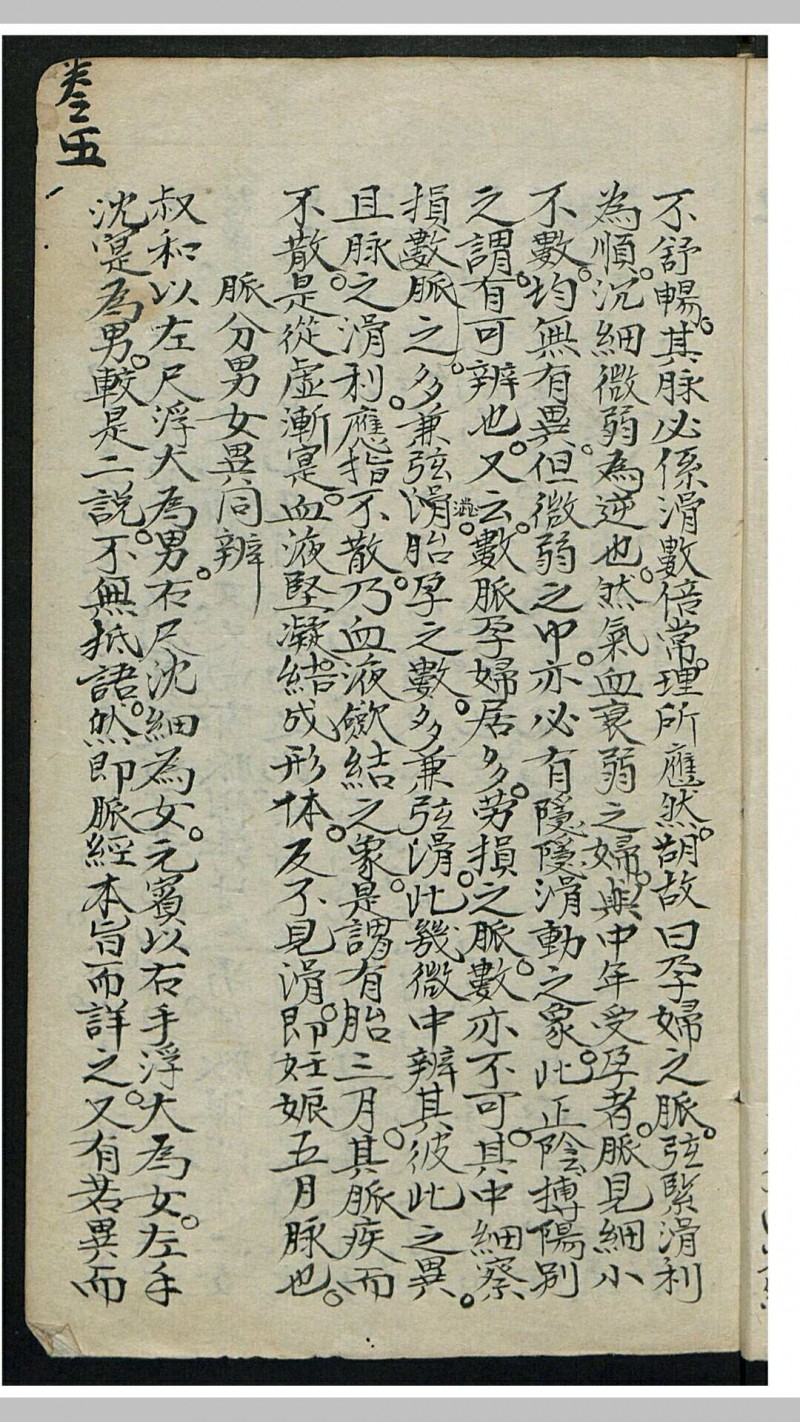 不舒暢。其脉必係滑數倍常。理所應然。胡故曰孕婦之脈。弦緊滑利
為順。沉細微弱為逆也。然氣血衰弱之婦。與中年受孕者。脈見細小
不數。均無有異。但微弱之中。亦必有隱隱滑動之象。此正陰搏陽別
之謂。有可辨也。又云。數脈孕婦居多。劳損之脈。數亦不可。其中細察
損數脈之多。兼弦滑胎孕之數。多兼弦滑。此幾微中辨其彼此之異。
且脉之滑利應指。不散。乃血液斂結之象。是謂有胎三月。其脈疾而
不散。是從虛漸寔。血液堅凝結成形体。反不見滑。即妊娠五月脉也。
脈分男女異同辨
叔和以左尺浮大為男。右尺沈細為女。元賓以右手浮大為女。左手
沈寔為男。較是二說。不無抵語。然即脈經本旨而詳之。又有若異而
卷五